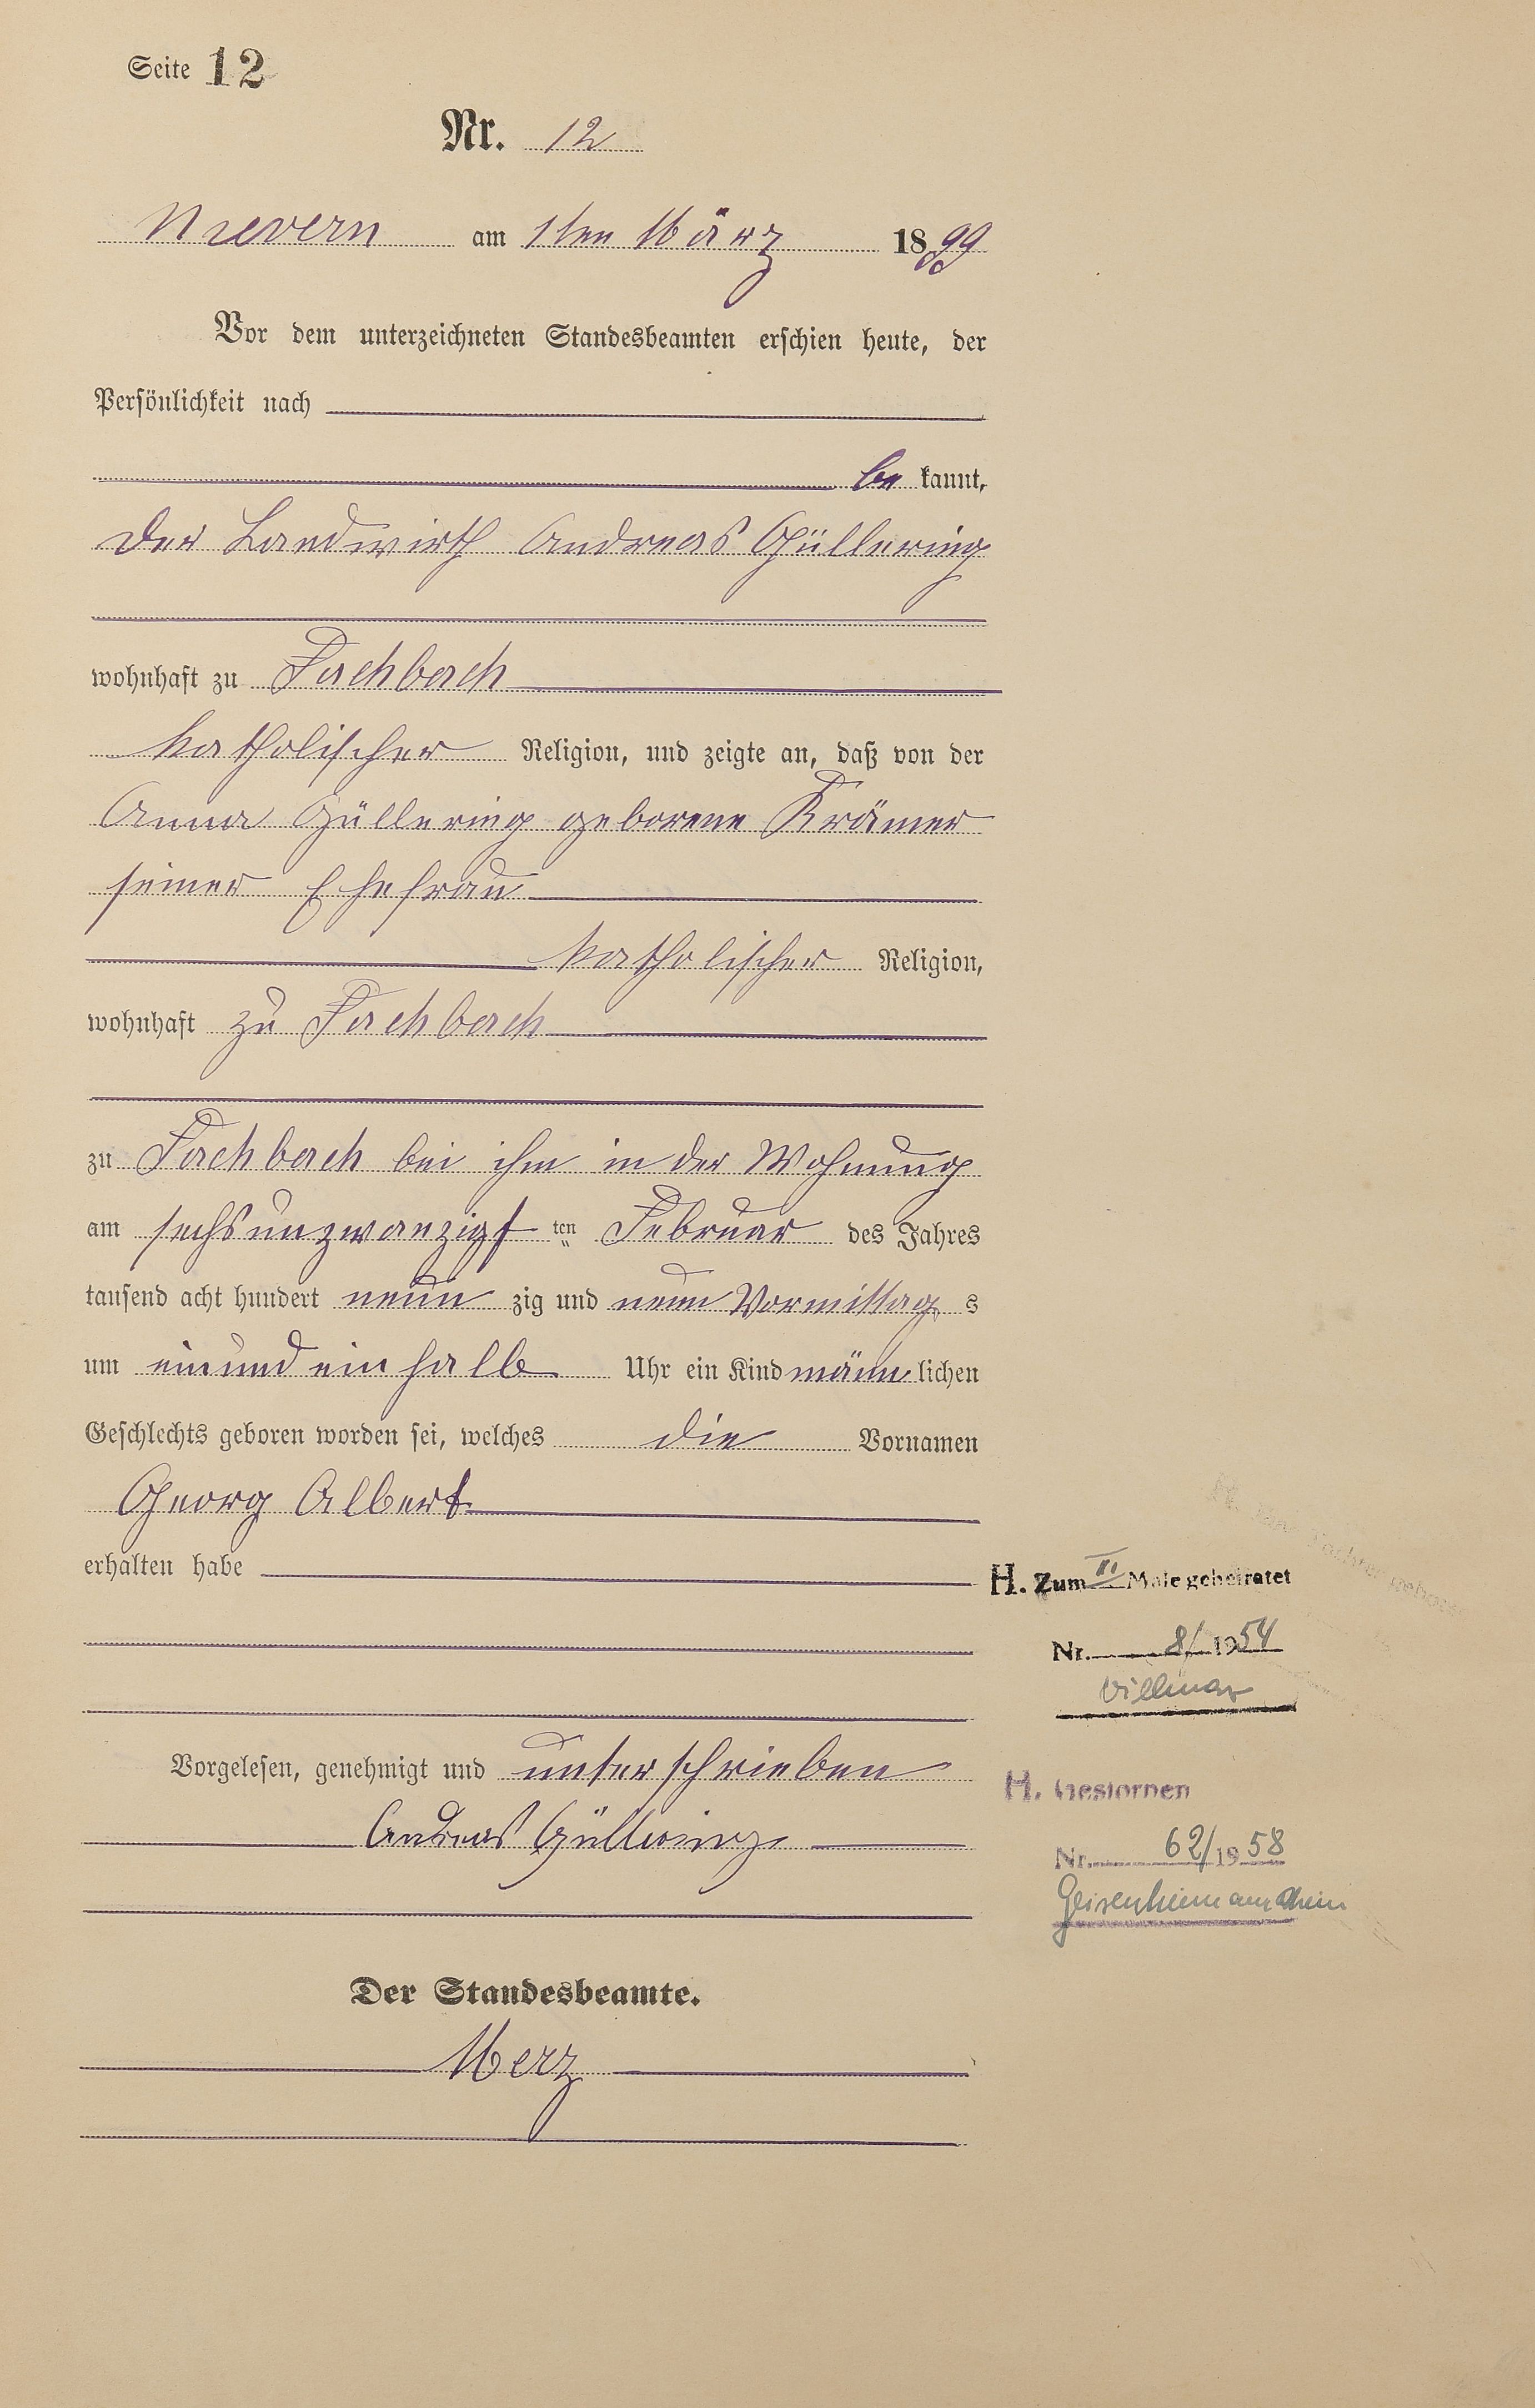 Seite 12
Nr. 12
Nievern am 1ten März 1899
Vor dem unterzeichneten Standesbeamten erschien heute, der
Persönlichkeit nach
be kannt,
der Landwirth Andreas Güllering
wohnhaft zu Fachbach
katholischer Religion, und zeigte an, daß von der
Anna Güllering geborene Krämer
seiner Ehefrau
katholischer Religion,
wohnhaft zu Fachbach
zu Fachbach bei ihm in der Wohnung
am sechsunzwanzigsten Februar des Jahres
tausend acht hundert neun zig und neun Vormittags
um einundeinhalb Uhr ein Kind männlichen
Geschlechts geboren worden sei, welches die Vornamen
Georg Albert
erhalten habe
H. Zum II Male geheiratet
Nr. 8/1954
Villmar
Vorgelesen, genehmigt und unterschrieben
Andreas Güllering
H. Gestorben
Nr. 62/1958
Geisenheim am Rhein
Der Standesbeamte.
Merz